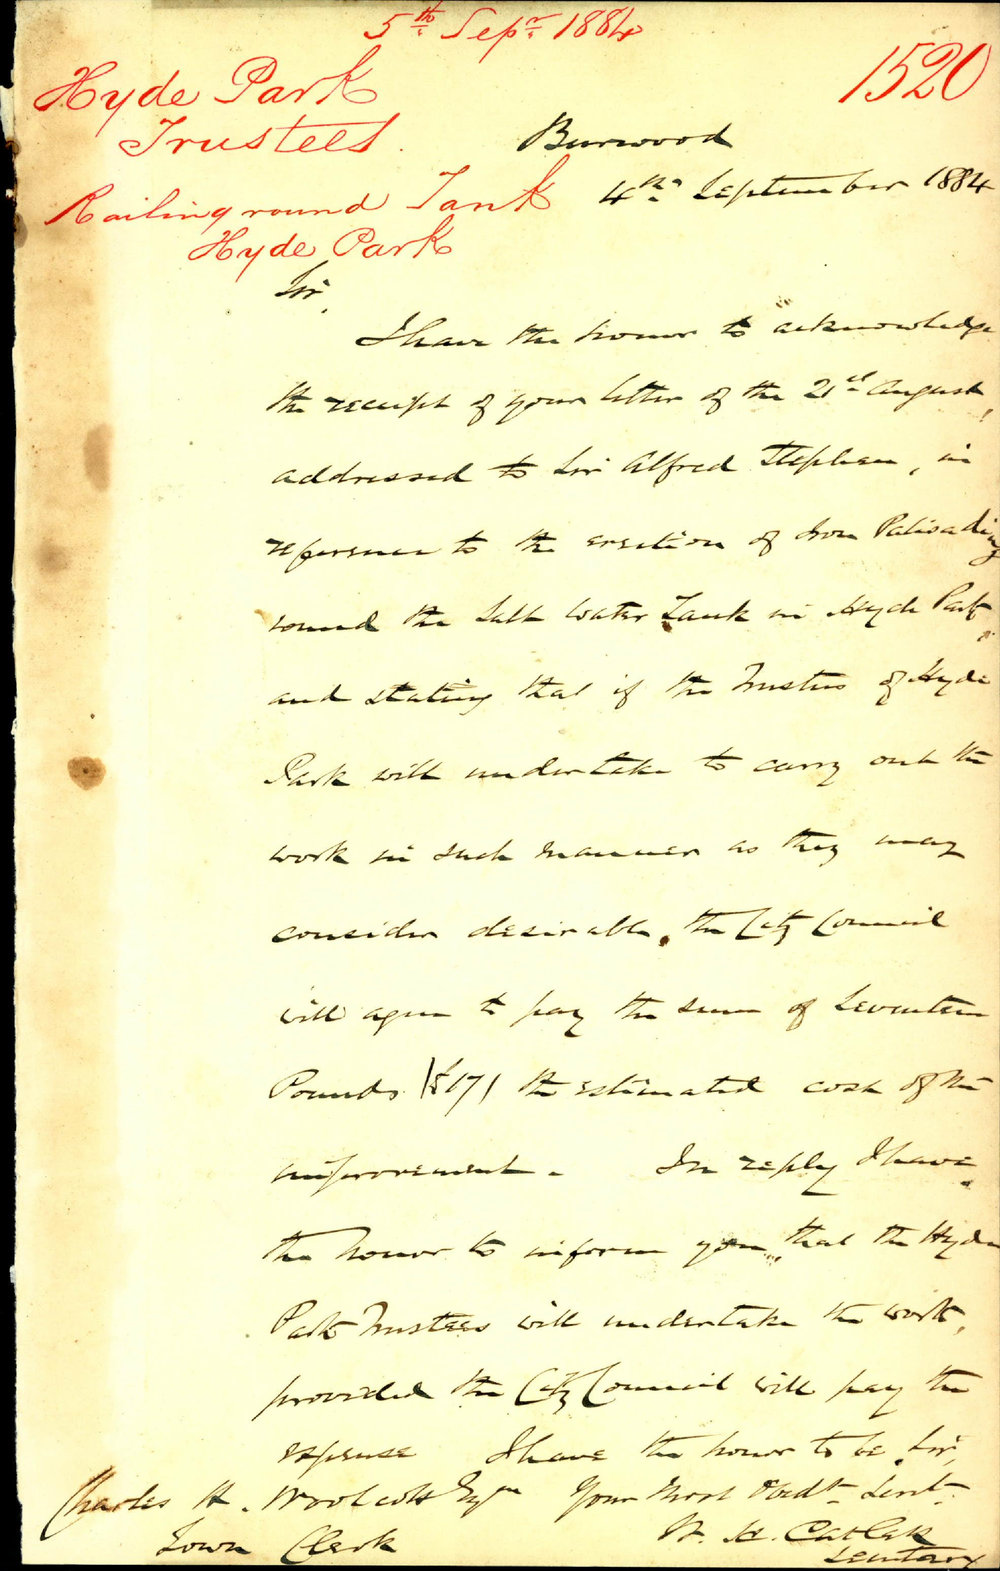 5th Sepr 1884
1520
Hyde Park
Trustees.
Burwood
4th September 1884
Railing round Tank
Hyde Park
Sir,
I have the honor to acknowledge
the receipt of your letter of the 21st August,
addressed to Sir Alfred Stephen, in
reference to the erection of Iron Palisading
round the Salt Water Tank in Hyde Park,
and stating that if the Trustees of Hyde
Park will undertake to carry out the
work in such manner as they may
consider desirable, the City Council
will agree to pay the sum of Seventeen
Pounds (£17) the estimated cost of the
improvement. In reply I have
the honor to inform you, that the Hyde
Park Trustees will undertake the work,
provided the City Council will pay the
expense I have the honor to be, Sir,
Charles H. Woolcott Esqre Your Most Obedt Servt
Town Clerk
W. H. Catlett
Secretary